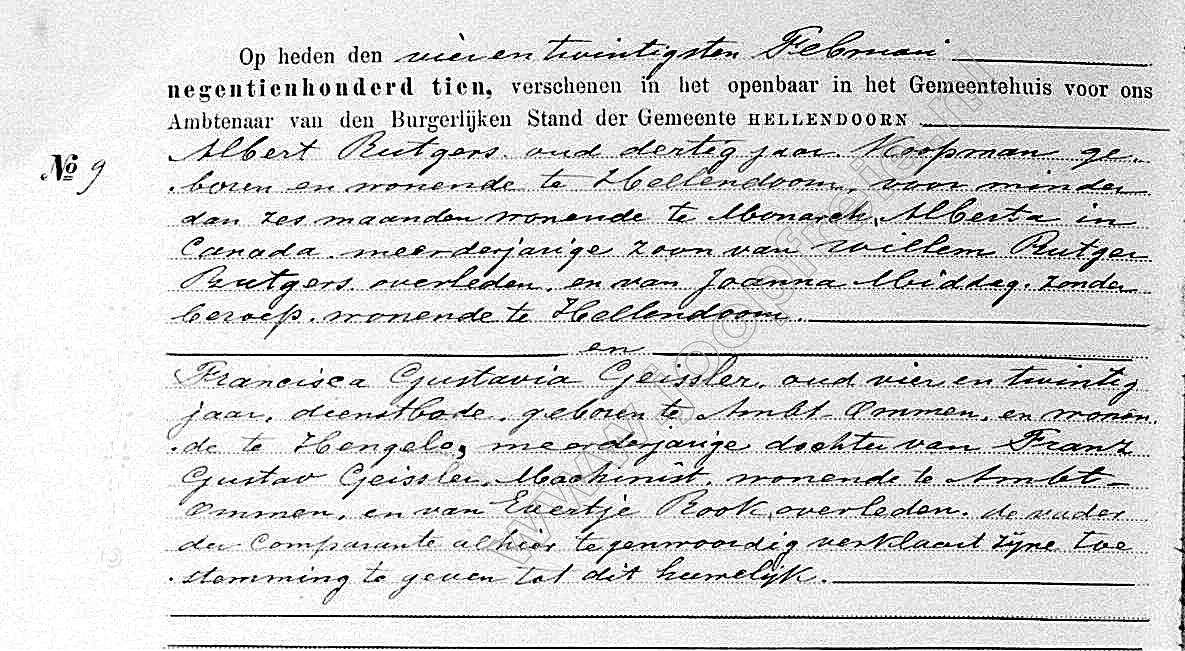 Op heden den vier en twintigsten Februari
negentienhonderd tien, verschenen in het openbaar in het Gemeentehuis voor ons
Ambtenaar van den Burgerlijken Stand der Gemeente HELLENDOORN
No 9
Albert Rutgers, oud dertig jaar, Koopman, ge-
boren en wonende te Hellendoorn, voor minder
dan zes maanden wonende te Monarch, Alberta in
Canada, meerderjarige zoon van Willem Rutger
Rutgers, overleden, en van Joanna Middag, zonder
beroep, wonende te Hellendoorn.
en
Francisca Gustavia Geissler, oud vier en twintig
jaar, dienstbode, geboren te Ambt-Ommen, en wonen-
de te Hengelo, meerderjarige dochter van Franz
Gustav Geissler, Machinist, wonende te Ambt-
Ommen, en van Evertje Rook, overleden. de vader
der comparante alhier tegenwoordig verklaart zijne toe
stemming te geven tot dit huwelijk.